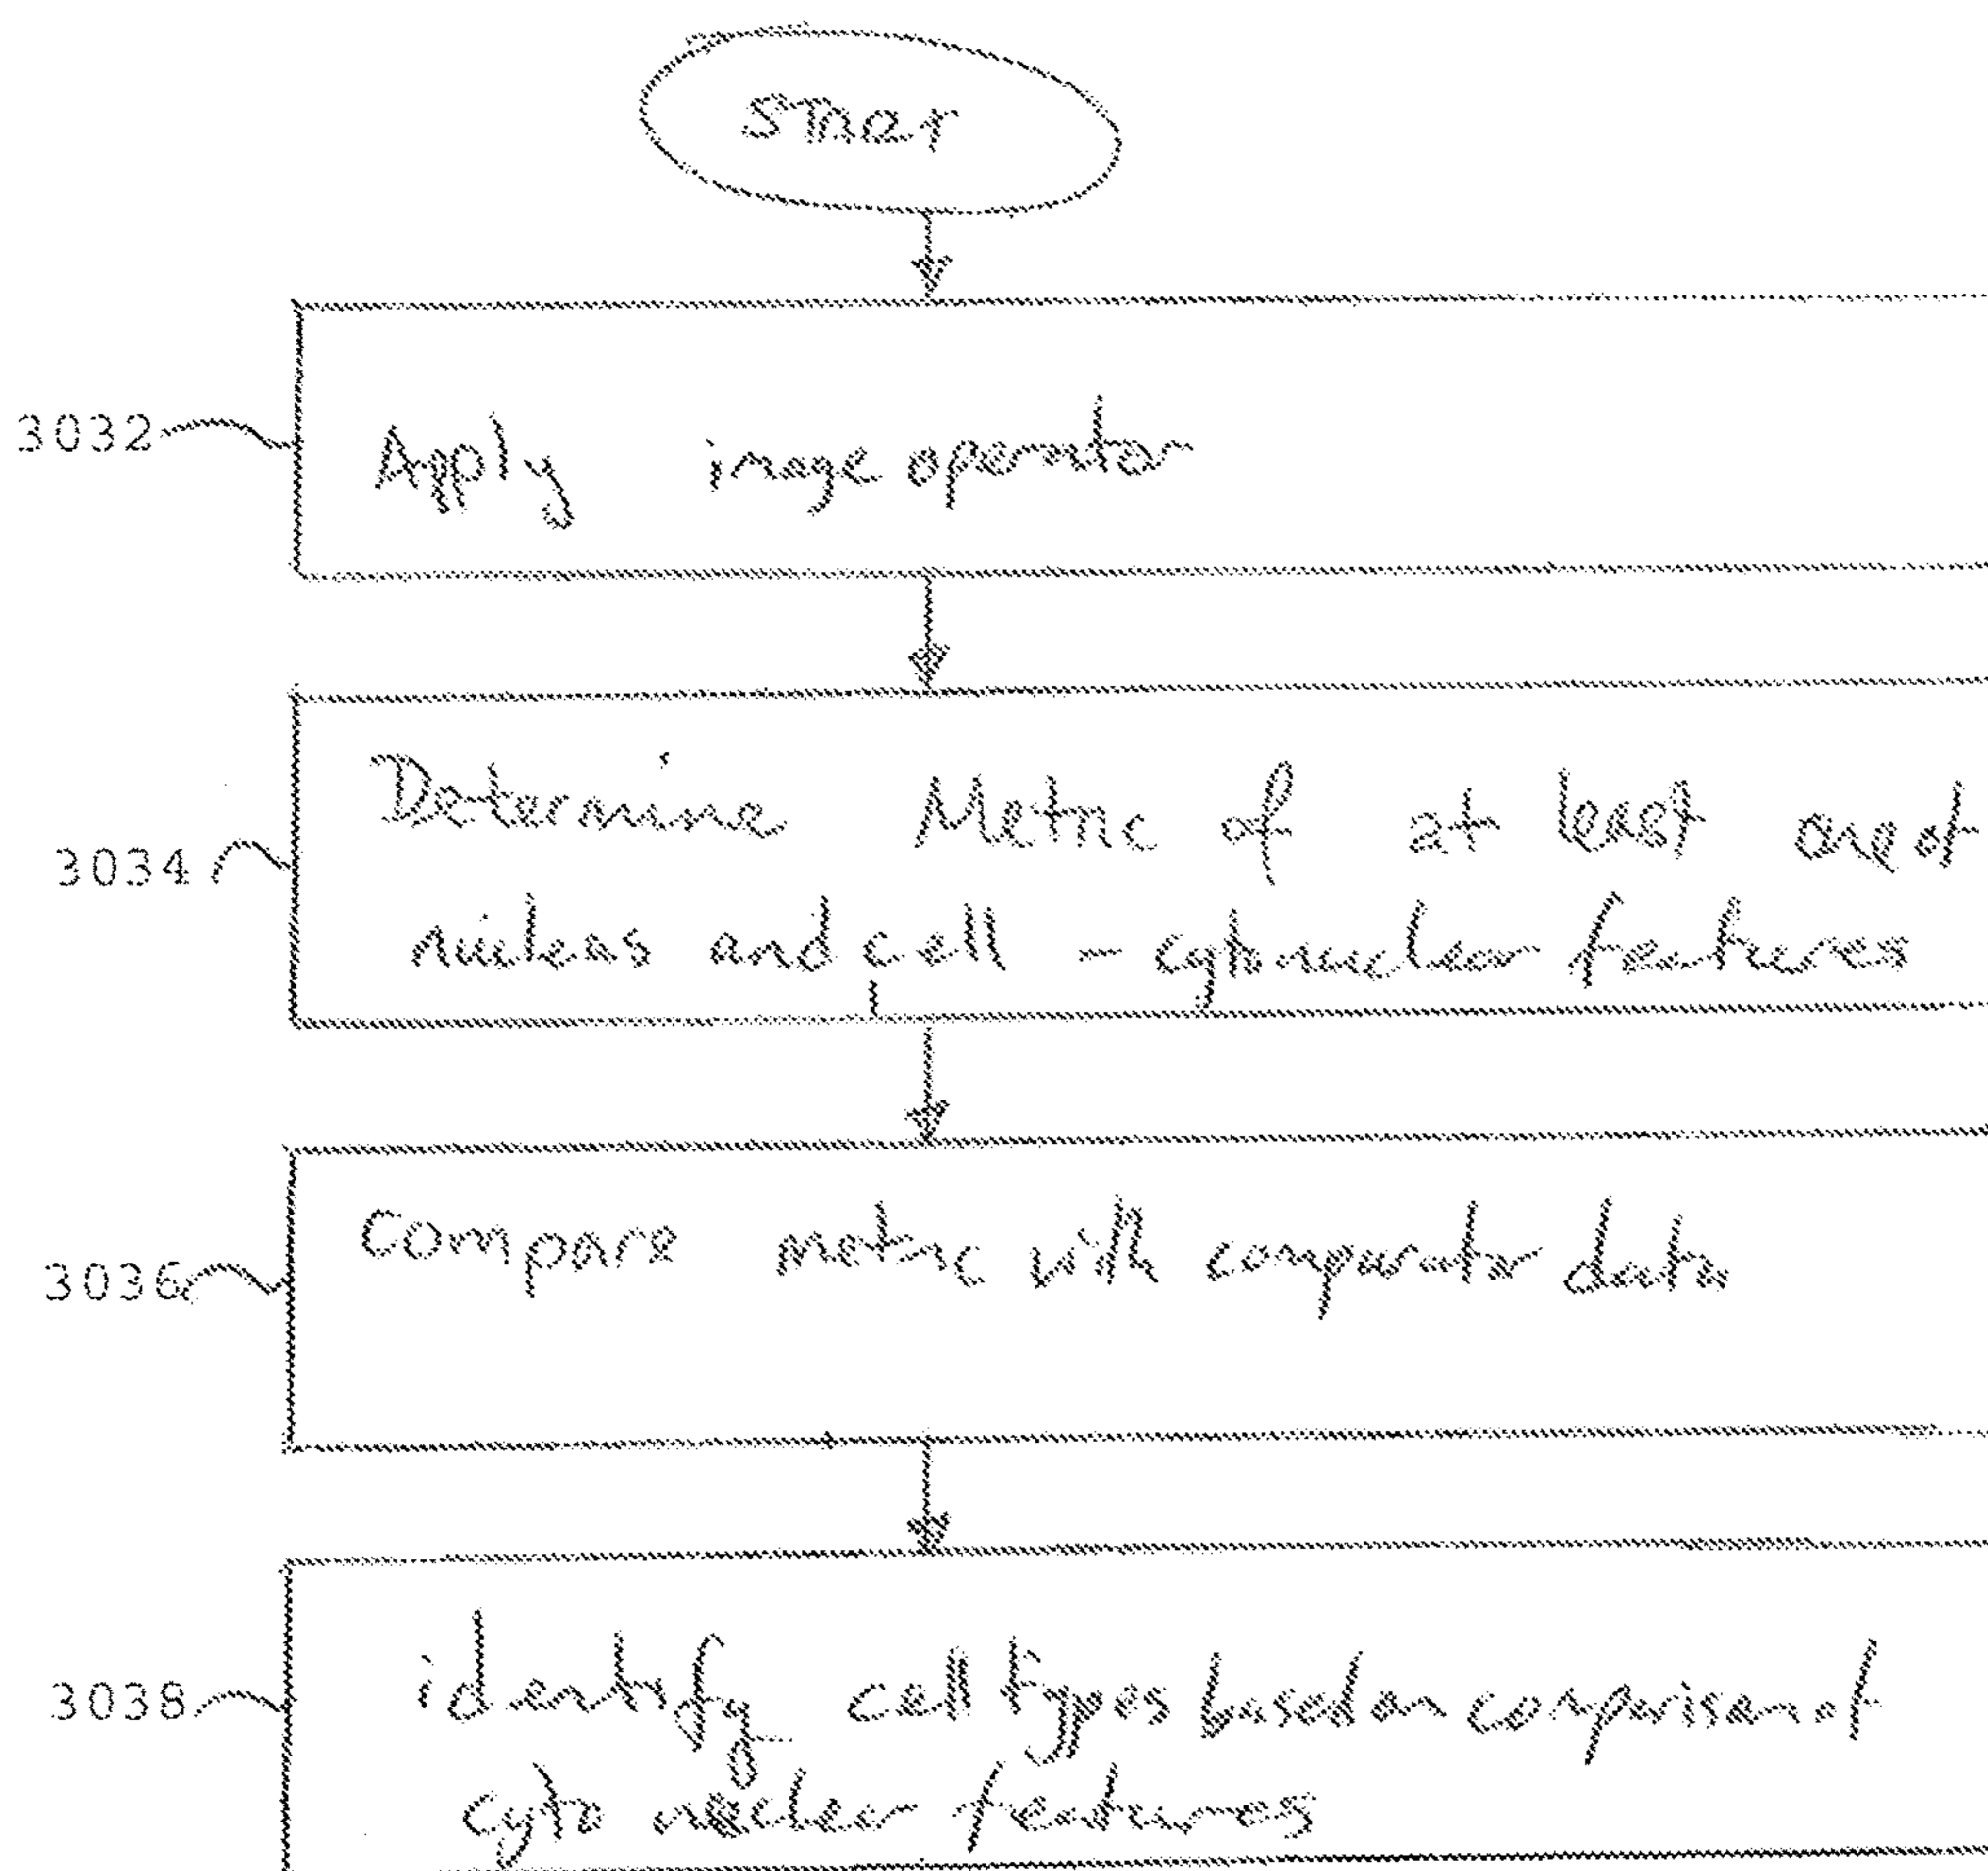 Start
3032
Apply image operator
3034
Determine Metric of at least one of
nucleus and cell - cytonuclear features
3036
Compare metric with comparator data
3038
identify cell types based on comparison of
cyto nuclear features